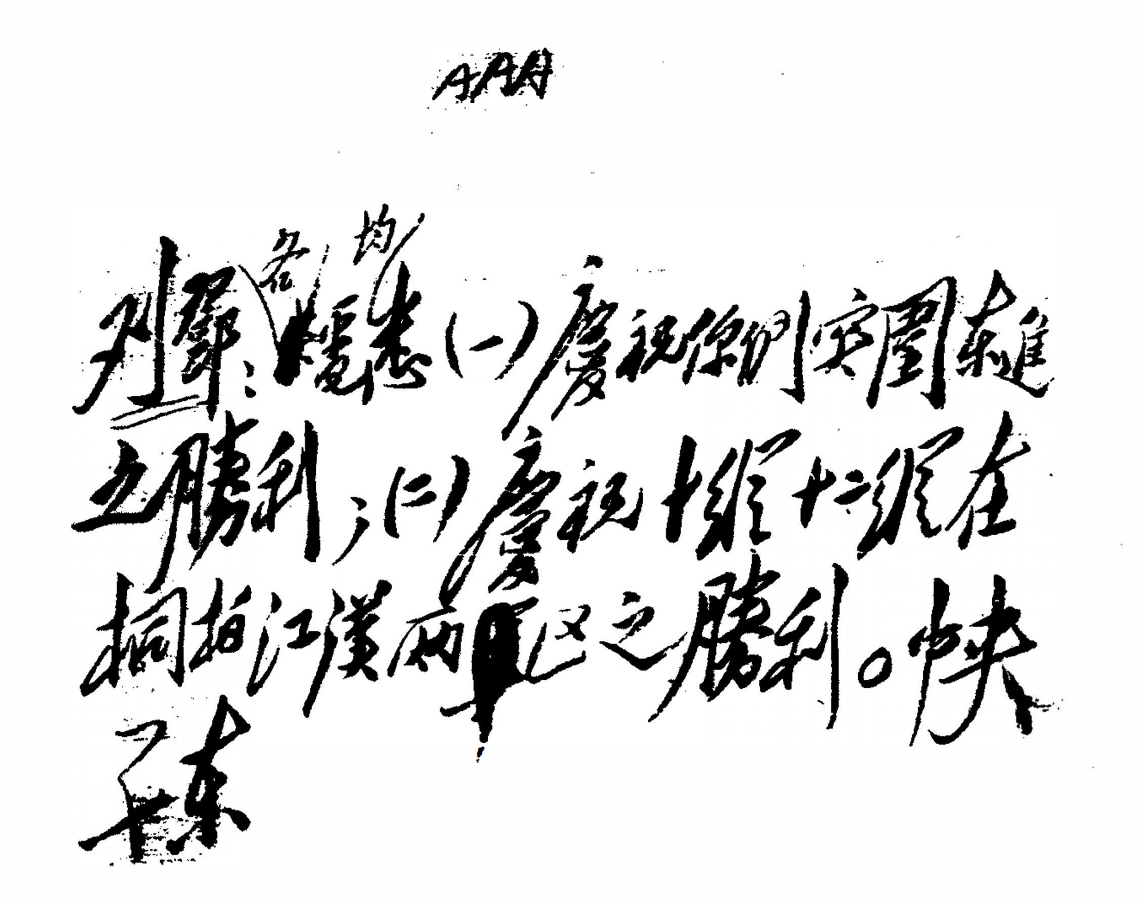 AAA
刘鄧：各電均悉(一)慶祝你們突圍東進
之勝利，(二)慶祝十縱十二縱在
桐柏江漢兩区之勝利。中央
东